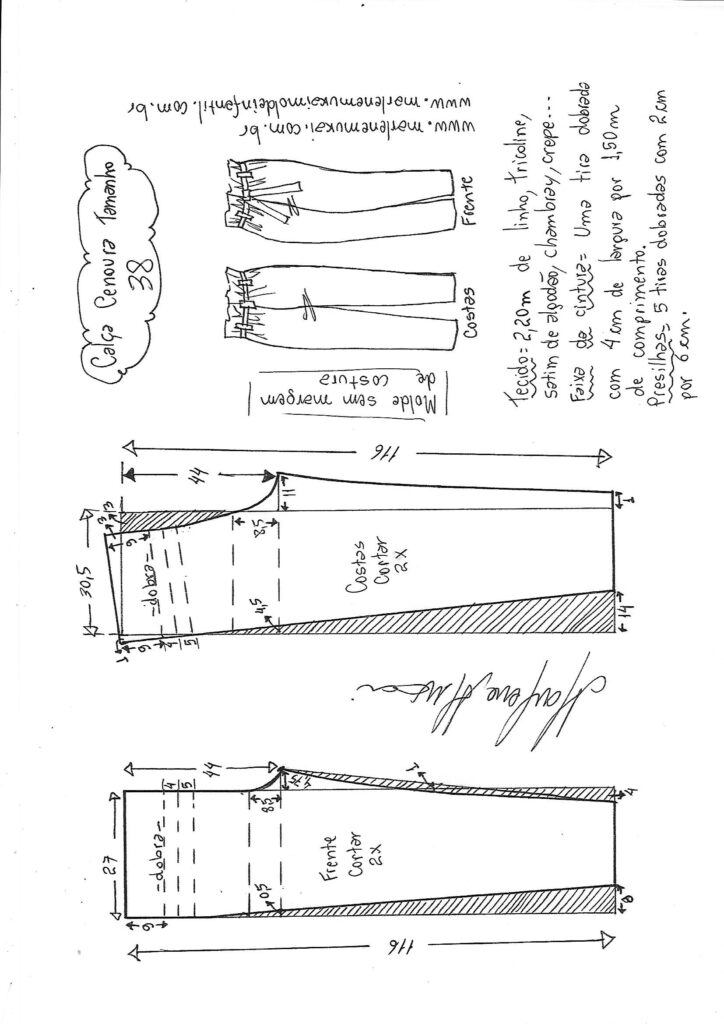 Calça Cenoura Tamanho
38
www.marlenemukai.com.br
www.marlenemukaimoldeinfantil.com.br
Frente
Costas
Molde sem margem
de costura
Tecido= 2,20m de linho, tricoline,
satim de algodão, chambray, crepe...
Faixa da cintura= Uma tira dobrada
com 4cm de largura por 1,50m
de comprimento.
Presilhas= 5 tiras dobradas com 2cm
por 6cm.
116
44
3
3
6
30,5
-dobra-
8,5
11
1
Costas
Cortar
2X
4,5
1
6
4
5
14
Marlene Mukai
44
4
5
8,5
1
4
27
-dobra-
Frente
Cortar
2X
0,5
6
8
116